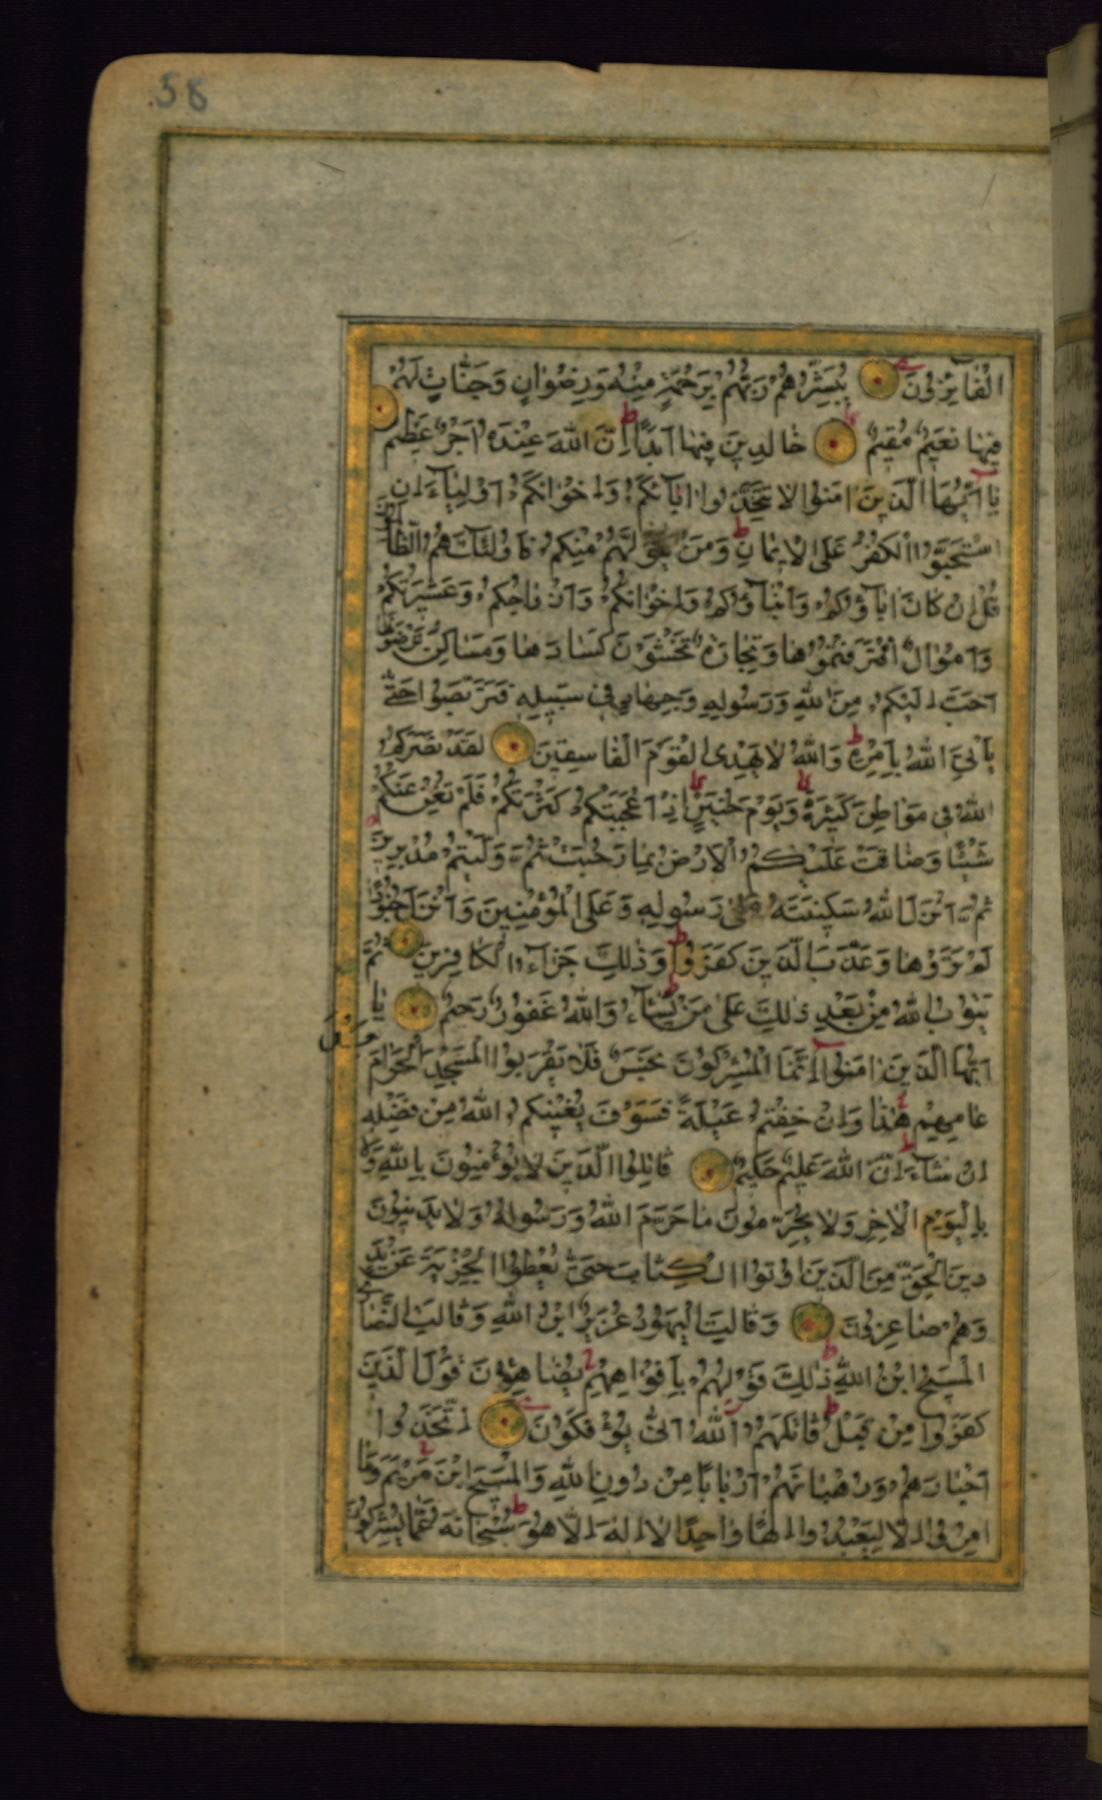 58
الْفَائِزُونَ يُبَشِّرُهُمْ رَبُّهُمْ بِرَحْمَةٍ مِنْهُ وَرِضْوَانٍ وَجَنَّاتٍ لَهُمْ
فِيهَا نَعِيمٌ مُقِيمٌ خَالِدِينَ فِيهَا أَبَدًا إِنَّ اللَّهَ عِنْدَهُ أَجْرٌ عَظِيمٌ
يَا أَيُّهَا الَّذِينَ آمَنُوا لَا تَتَّخِذُوا آبَائَكُمْ وَإِخْوَانَكُمْ أَوْلِيَاءَ إِنِ
اسْتَحَبُّوا الْكُفْرَ عَلَى الْإِيمَانِ وَمَنْ يَتَوَلَّهُمْ مِنْكُمْ فَأُولَئِكَ هُمُ الظَّالِمُونَ
قُلْ إِنْ كَانَ آبَاؤُكُمْ وَأَبْنَاؤُكُمْ وَإِخْوَانُكُمْ وَأَزْوَاجُكُمْ وَعَشِيرَتُكُمْ
وَأَمْوَالٌ اقْتَرَفْتُمُوهَا وَتِجَارَةٌ تَخْشَوْنَ كَسَادَهَا وَمَسَاكِنُ تَرْضَوْنَهَا
أَحَبَّ إِلَيْكُمْ مِنَ اللَّهِ وَرَسُولِهِ وَجِهَادٍ فِي سَبِيلِهِ فَتَرَبَّصُوا حَتَّى
يَأْتِيَ اللَّهُ بِأَمْرِهِ وَاللَّهُ لَا يَهْدِي الْقَوْمَ الْفَاسِقِينَ لَقَدْ نَصَرَكُمُ
اللَّهُ فِي مَوَاطِنَ كَثِيرَةٍ وَيَوْمَ حُنَيْنٍ إِذْ أَعْجَبَتْكُمْ كَثْرَتُكُمْ فَلَمْ تُغْنِ عَنْكُمْ
شَيْئًا وَضَاقَتْ عَلَيْكُمُ الْأَرْضُ بِمَا رَحُبَتْ ثُمَّ وَلَّيْتُمْ مُدْبِرِينَ
ثُمَّ أَنْزَلَ اللَّهُ سَكِينَتَهُ عَلَى رَسُولِهِ وَعَلَى الْمُؤْمِنِينَ وَأَنْزَلَ جُنُودًا
لَمْ تَرَوْهَا وَعَذَّبَ الَّذِينَ كَفَرُوا وَذَلِكَ جَزَاءُ الْكَافِرِينَ ثُمَّ
يَتُوبُ اللَّهُ مِنْ بَعْدِ ذَلِكَ عَلَى مَنْ يَشَاءُ وَاللَّهُ غَفُورٌ رَحِيمٌ يَا
أَيُّهَا الَّذِينَ آمَنُوا إِنَّمَا الْمُشْرِكُونَ نَجَسٌ فَلَا يَقْرَبُوا الْمَسْجِدَ الْحَرَامَ بَعْدَ
عَامِهِمْ هَذَا وَإِنْ خِفْتُمْ عَيْلَةً فَسَوْفَ يُغْنِيكُمُ اللَّهُ مِنْ فَضْلِهِ
إِنْ شَاءَ إِنَّ اللَّهَ عَلِيمٌ حَكِيمٌ قَاتِلُوا الَّذِينَ لَا يُؤْمِنُونَ بِاللَّهِ وَلَا
بِالْيَوْمِ الْآخِرِ وَلَا يُحَرِّمُونَ مَا حَرَّمَ اللَّهُ وَرَسُولُهُ وَلَا يَدِينُونَ
دِينَ الْحَقِّ مِنَ الَّذِينَ أُوتُوا الْكِتَابَ حَتَّى يُعْطُوا الْجِزْيَةَ عَنْ يَدٍ
وَهُمْ صَاغِرُونَ وَقَالَتِ الْيَهُودُ عُزَيْرٌ ابْنُ اللَّهِ وَقَالَتِ النَّصَارَى
الْمَسِيحُ ابْنُ اللَّهِ ذَلِكَ قَوْلُهُمْ بِأَفْوَاهِهِمْ يُضَاهِئُونَ قَوْلَ الَّذِينَ
كَفَرُوا مِنْ قَبْلُ قَاتَلَهُمُ اللَّهُ أَنَّى يُؤْفَكُونَ اتَّخَذُوا
أَحْبَارَهُمْ وَرُهْبَانَهُمْ أَرْبَابًا مِنْ دُونِ اللَّهِ وَالْمَسِيحَ ابْنَ مَرْيَمَ وَمَا
أُمِرُوا إِلَّا لِيَعْبُدُوا إِلَهًا وَاحِدًا لَا إِلَهَ إِلَّا هُوَ سُبْحَانَهُ عَمَّا يُشْرِكُونَ